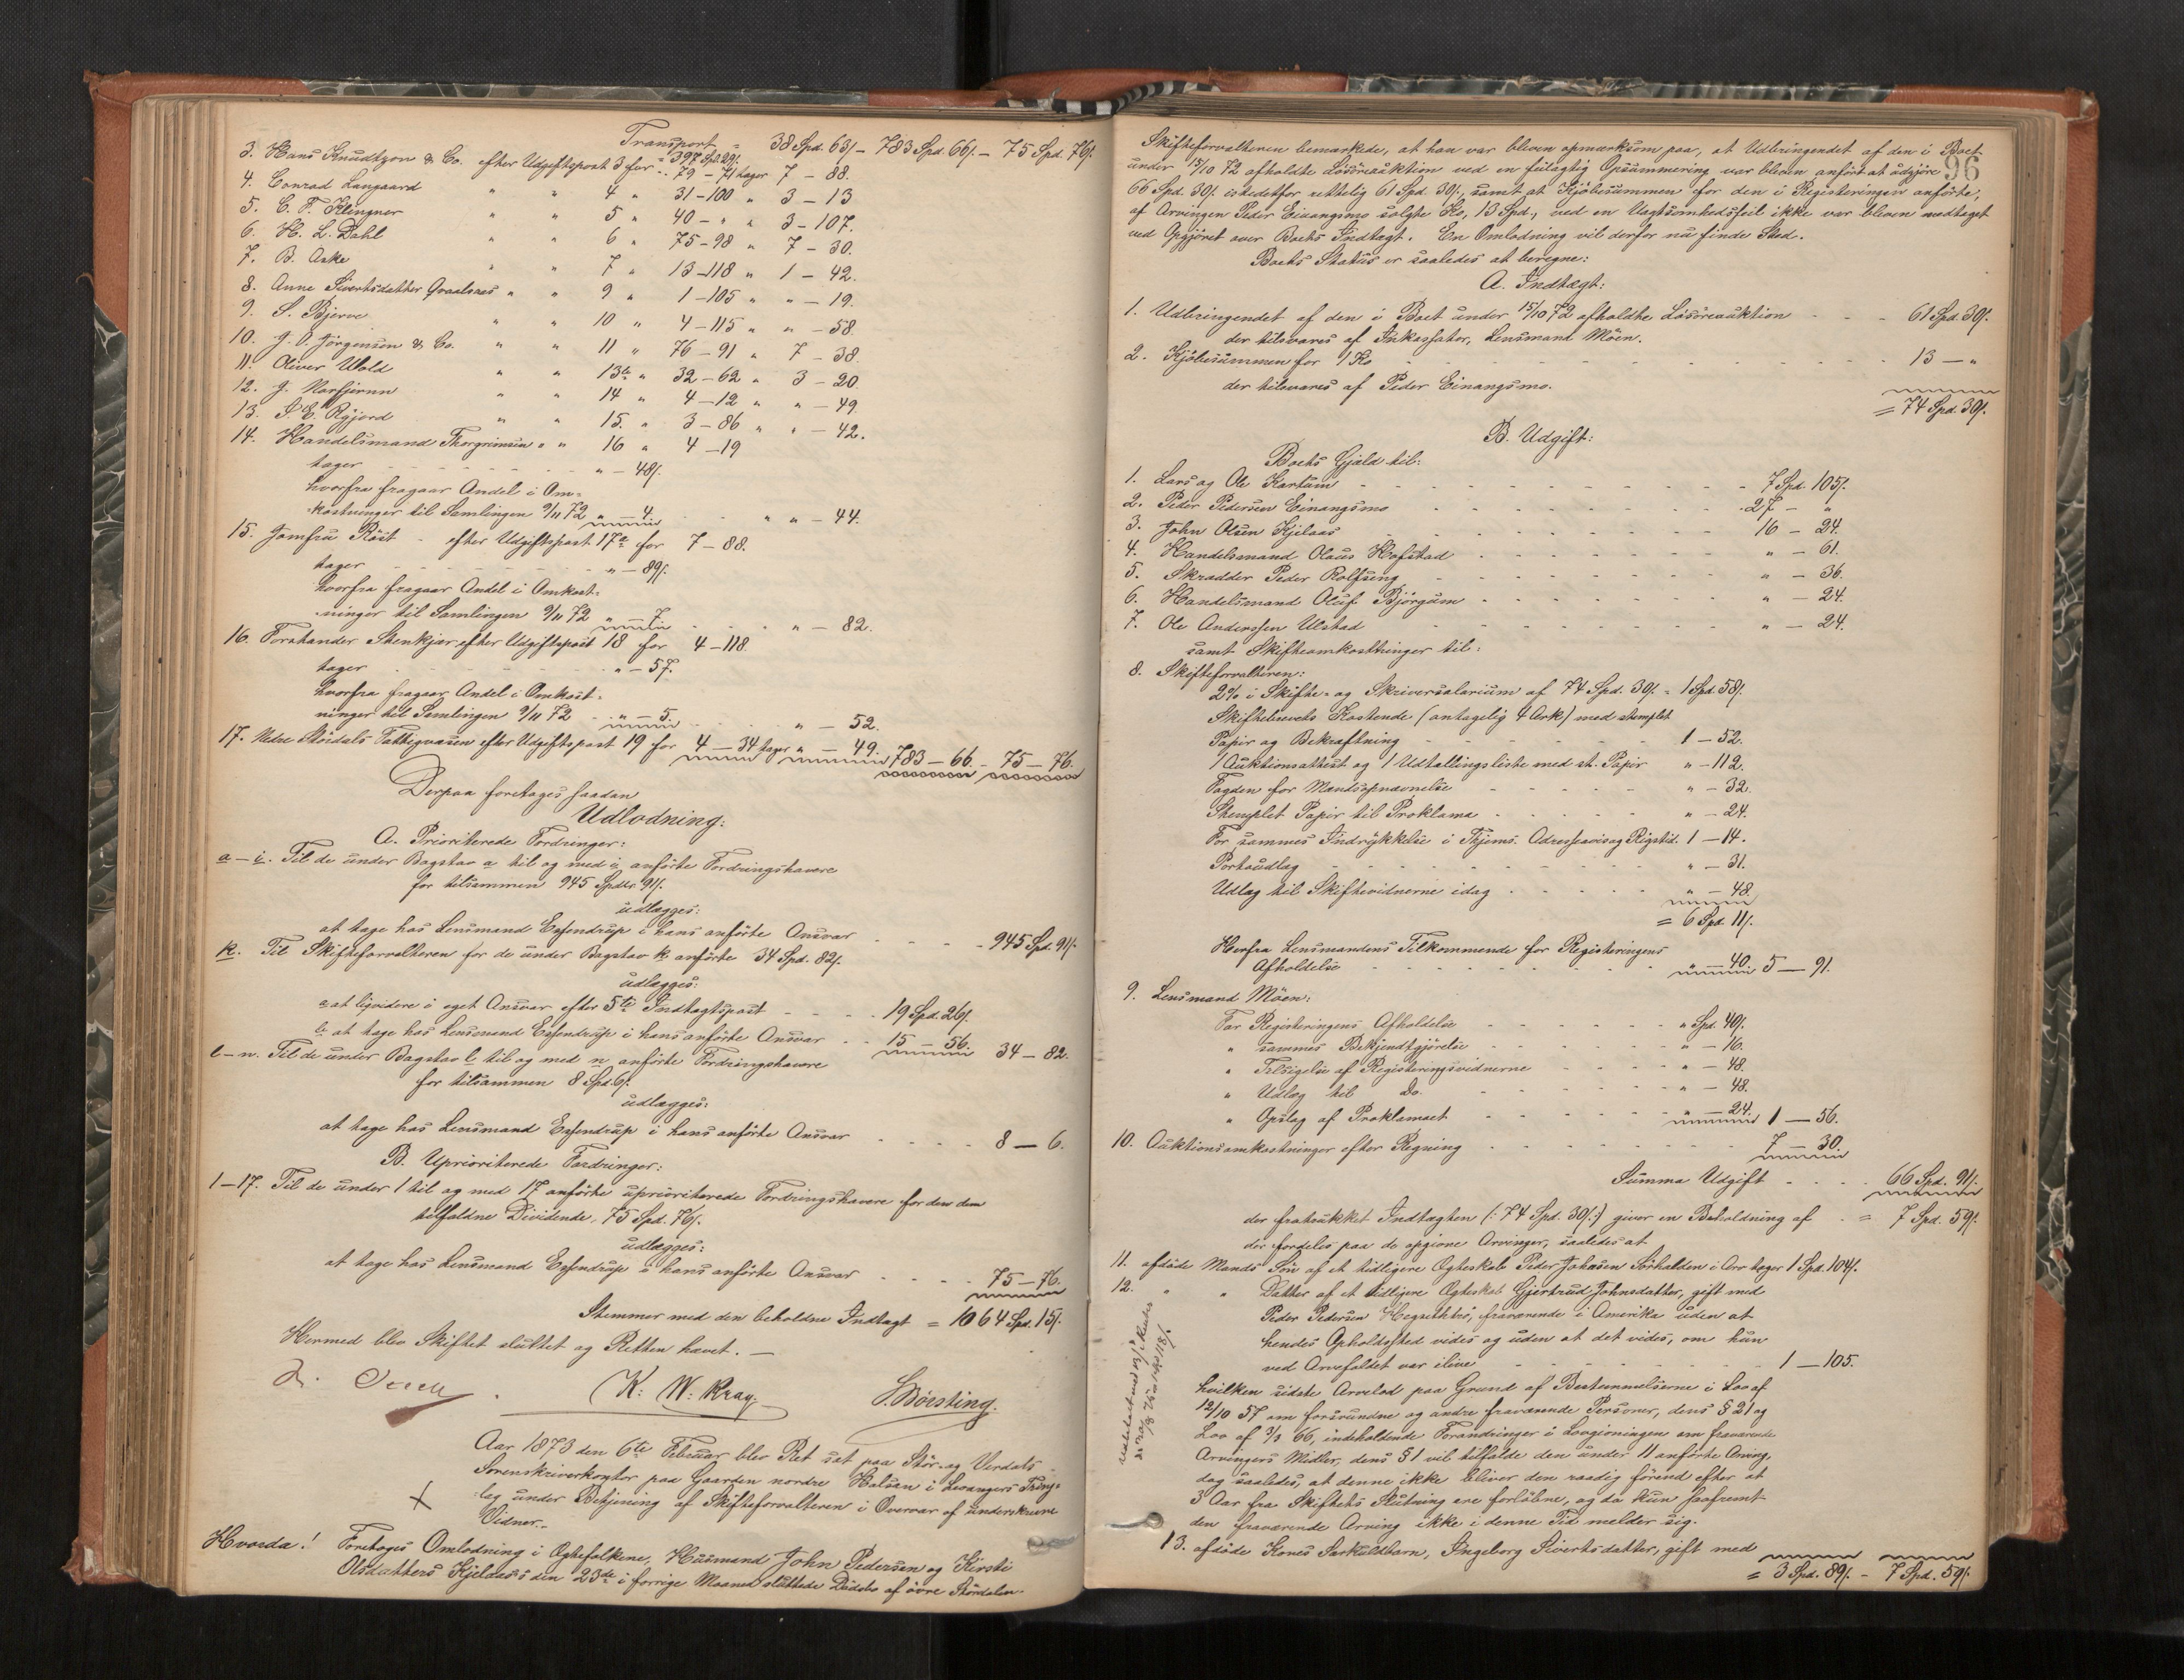 Transport = 38 Spd. 63/- 783 Spd. 66/. - 75 Spd. 76/.
= 397 Spd. 29/.
3. Hans Knudtzon & Co. efter Udgiftspost 3 for 79 - 71 tager 7 - 88.
4. Conrad Langaard " " 4 " 31-100 " 3 - 13
5. C. F. Klingner " " 5 " 40 - " " 3 - 107.
6. H. L. Dahl " " 6 " 75-98 " 7 - 30.
7. B. Aske " " 7 " 13-118 " 1 - 42.
8. Anne Sivertsdatter Graalsaes " " 9 " 1-105 " " - 19.
9. S. Bjerve " " 10 " 4-115 " " - 58.
10. J. O. Jörgensen & Co. " " 11 " 76-91 " 7 - 38.
11. Oliver Wold " " 13de " 32-62 " 3 - 20
12. J. Marfjerun " " 14 " 4-12 " " - 49.
13. S. E. Ryjord " " 15. " 3-86 " " - 42.
14. Handelsmand Thorgrimsen " " 16 " 4-19
tager " - 48/.
hvorfra fragaar Andel i Om-
kostninger til Samlingen 9/11 72 " - 4. " " - 44.
15. Jomfru Röst - efter Udgiftspost 17de for 7 - 88.
tager " - 89/.
hvorfra fragaar Andel i Omkost-
ninger til Samlingen 9/11 72 " - 7. " - 82.
16. Forstander Stenkjær efter Udgiftspost 18 for 4 - 118.
tager " - 57.
hvorfra fragaar Andel i Omkost-
ninger til Samlingen 9/11 72 " - 5. " - 52.
17. Nedre Stördals Fattigvæsen efter Udgiftspost 19 for 4 - 34 tager " - 49. 783 - 66. - 75 - 76.
Derpaa foretages saadan
Udlodning:
A. Prioriterede Fordringer:
a - i. Til de under Bogstav a til og med i anförte Fordringshavere
for tilsammen 945 Spdlr. 91/.
udlægges:
at tage hos Lensmand Essendrup i hans anförte Ansvar - 945 Spd. 91/.
k. Til Skifteforvalteren for de under Bogstav k anförte 34 Spd. 82/.
udlægges:
a at liqvidere i eget Ansvar efter 5te Indtægtspost - 19 Spd. 26/.
b at tage hos Lensmand Essendrup i hans anförte Ansvar - 15 - 56. 34 - 82.
l - n. Til de under Bogstav l til og med n anförte Fordringshavere
for tilsammen 8 Spd. 6/.
udlægges:
at tage hos Lensmand Essendrup i hans anförte Ansvar 8 - 6.
B. Uprioriterede Fordringer:
1-17. Til de under 1 til og med 17 anförte uprioriterede Fordringshavere for den dem
tilfaldne Dividende, 75 Spd. 76/.
udlægges:
at tage hos Lensmand Essendrup i hans anförte Ansvar 75 - 76.
Stemmer med den beholdne Indtægt = 1064 Spd. 15/.
Hermed blev Skiftet sluttet og Retten hævet. -
K. W. Kray. S. Börsting.
Aar 1873 den 6te Februar blev Ret sat paa Stör- og Værdals
Sorenskriverkontor paa Gaarden nordre Halsan i Levangers Thing-
lag under Betjening af Skifteforvalteren i Overvær af underskrevne
Vidner.
Hvorda! Foretages Omlodning i Ægtefolkene, Husmand John Pedersen og Kirsti
Olsdatters Kjelaas's den 23de i forrige Maaned sluttede Dödsbo af övre Stördalen.
96
Skifteforvalteren bemærkede, at han var bleven opmærksom paa, at Udbringendet af den i Boet
under 15/10 72 afholdte Lösöreauktion ved en feilagtig Opsummering var bleven anfört at udgjöre
66 Spd. 30/. istedetfor rettelig 61 Spd. 30/., samt at Kjöbesummen for den i Registeringen anförte,
af Arvingen Peder Einangsmo solgte Ko, 13 Spd., ved en Uagtsomhedsfeil ikke var bleven medtaget
ved Opgjöret over Boets Indtægt. En Omlodning vil derfor nu finde Sted.
Boets Status er saaledes at beregne:
A. Indtægt:
1. Udbringendet af den i Boet under 15/10 72 afholdte Lösöreauktion - - - 61 Spd. 30/.
der tilsvares af Inkassator, Lensmand Möen.
2. Kjöbesummen for 1 Ko - 13 - "
der tilsvares af Peder Einangsmo.
= 74 Spd. 30/.
B. Udgift:
Boets Gjæld til:
1. Lars og Ole Kartum - 7 Spd. 105/.
2. Peder Pedersen Einangsmo - 27 - "
3. John Olsen Kjelaas - 16 - 24.
4. Handelsmand Olaus Hofstad - " - 61.
5. Skrædder Peder Rolfseng - " - 36.
6. Handelsmand Oluf Björgum - " - 24.
7. Ole Anderssen Ulstad - " - 24.
samt Skifteomkostninger til:
8. Skifteforvalteren:
2% i Skifte- og Skriversalarium af 74 Spd. 30/. = 1 Spd. 58/.
Skiftebrevets Kostende (antagelig 4 Ark) med stemplet
Papir og Bekræftning 1 - 52.
1 Auktionsattest og 1 Udtællingsliste med st. Papir " - 112.
Fogden for Mandsopnævnelse " - 32.
Stemplet Papir til Proklama " - 24.
For sammes Indrykkelse i Thjems. Adresseavis og Rigstid. 1 - 14.
Portoudlæg " - 31.
Udlæg til Skiftevidnerne idag " - 48.
= 6 Spd. 11/.
Herfra Lensmandens Tilkommende for Registeringens
Afholdelse " - 40. 5 - 91.
9. Lensmand Möen:
For Registeringens Afholdelse " Spd. 40/.
" sammes Bekjendtgjörelse " - 16.
" Tilsigelse af Registeringsvidnerne " - 48.
" Udlæg til Do. " - 48.
" Opslag af Proklamaet " - 24. 1 - 56.
10. Auktionsomkostninger efter Regning 7 - 30.
Summa Udgift - 66 Spd. 91/.
der fratrukket Indtægten (: 74 Spd. 30/. :) giver en Beholdning af = 7 Spd. 59/.
der fordeles paa de opgivne Arvinger, saaledes at
11. afdöde Mands Sön af et tidligere Ægteskab Peder Johnsen Sörhalden i Arv tager 1 Spd. 104/.
12. " " Datter af et tidligere Ægteskab Gjertrud Johnsdatter, gift med
Peder Pedersen, fraværende i Amerika uden at
hendes Opholdssted vides og uden at det vides, om hun
ved Arvefaldet var ilive 1 - 105.
hvilken sidste Arvelod paa Grund af Bestemmelserne i Lov af
12/10 57 om forsvundne og andre fraværende Personer, dens § 21 og
Lov af 3/3 66, indeholdende Forandringer i Lovgivningen om fraværende
Arvingers Midler, dens § 1 vil tilfalde den under 11 anförte Arving,
dog saaledes, at denne ikke bliver den raadig förend efter at
3 Aar fra Skiftets Slutning ere forlöbne, og da kun saafremt
den fraværende Arving ikke i denne Tid melder sig.
13. afdöde Kones Særkuldbarn, Ingeborg Sivertsdatter, gift med
= 3 Spd. 89/. - 7 Spd. 59/.